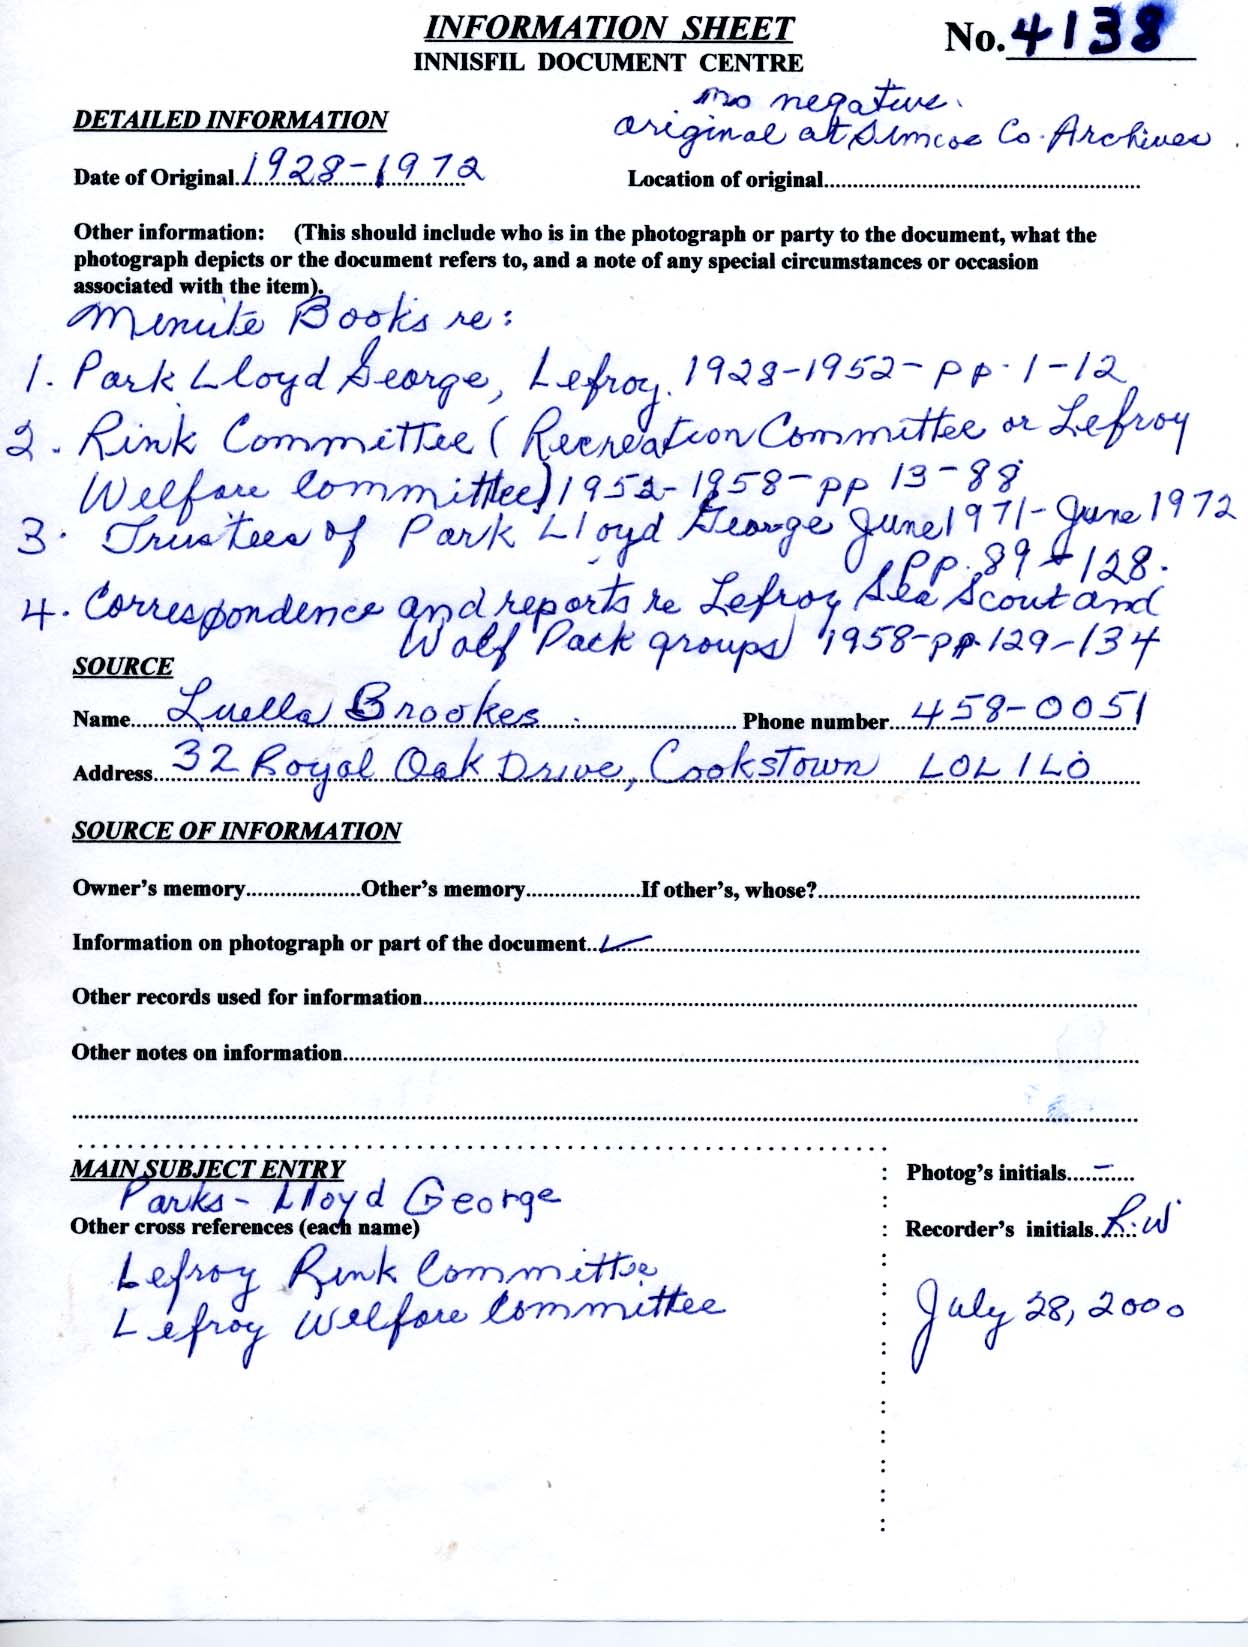 INFORMATION SHEET
No. 4138
INNISFIL DOCUMENT CENTRE
no negative.
DETAILED INFORMATION
original at Simcoe Co. Archives.
Date of Original.1928-1972
Location of original
Other information: (This should include who is in the photograph or party to the document, what the
photograph depicts or the document refers to, and a note of any special circumstances or occasion
associated with the item).
Minute Books re:
1. Park Lloyd George, Lefroy. 1928-1952- pp. 1-12
2. Rink Committee (Recreation Committee or Lefroy
Welfare Committee) 1952-1958- pp 13-88
3. Trustees of Park Lloyd George June 1971- June 1972
pp. 89-128.
4. Correspondence and reports re Lefroy Sea Scout and
Wolf Pack groups 1958- pp. 129-134
SOURCE
Name Luella Brookes Phone number 458-0051
Address 32 Royal Oak Drive, Cookstown L0L 1L0
SOURCE OF INFORMATION
Owner's memory Other's memory If other's, whose?
Information on photograph or part of the document ✓
Other records used for information
Other notes on information
MAIN SUBJECT ENTRY
Photog's initials -
Parks- Lloyd George
Other cross references (each name)
Recorder's initials R.W
Lefroy Rink Committee
Lefroy Welfare Committee
July 28, 2000